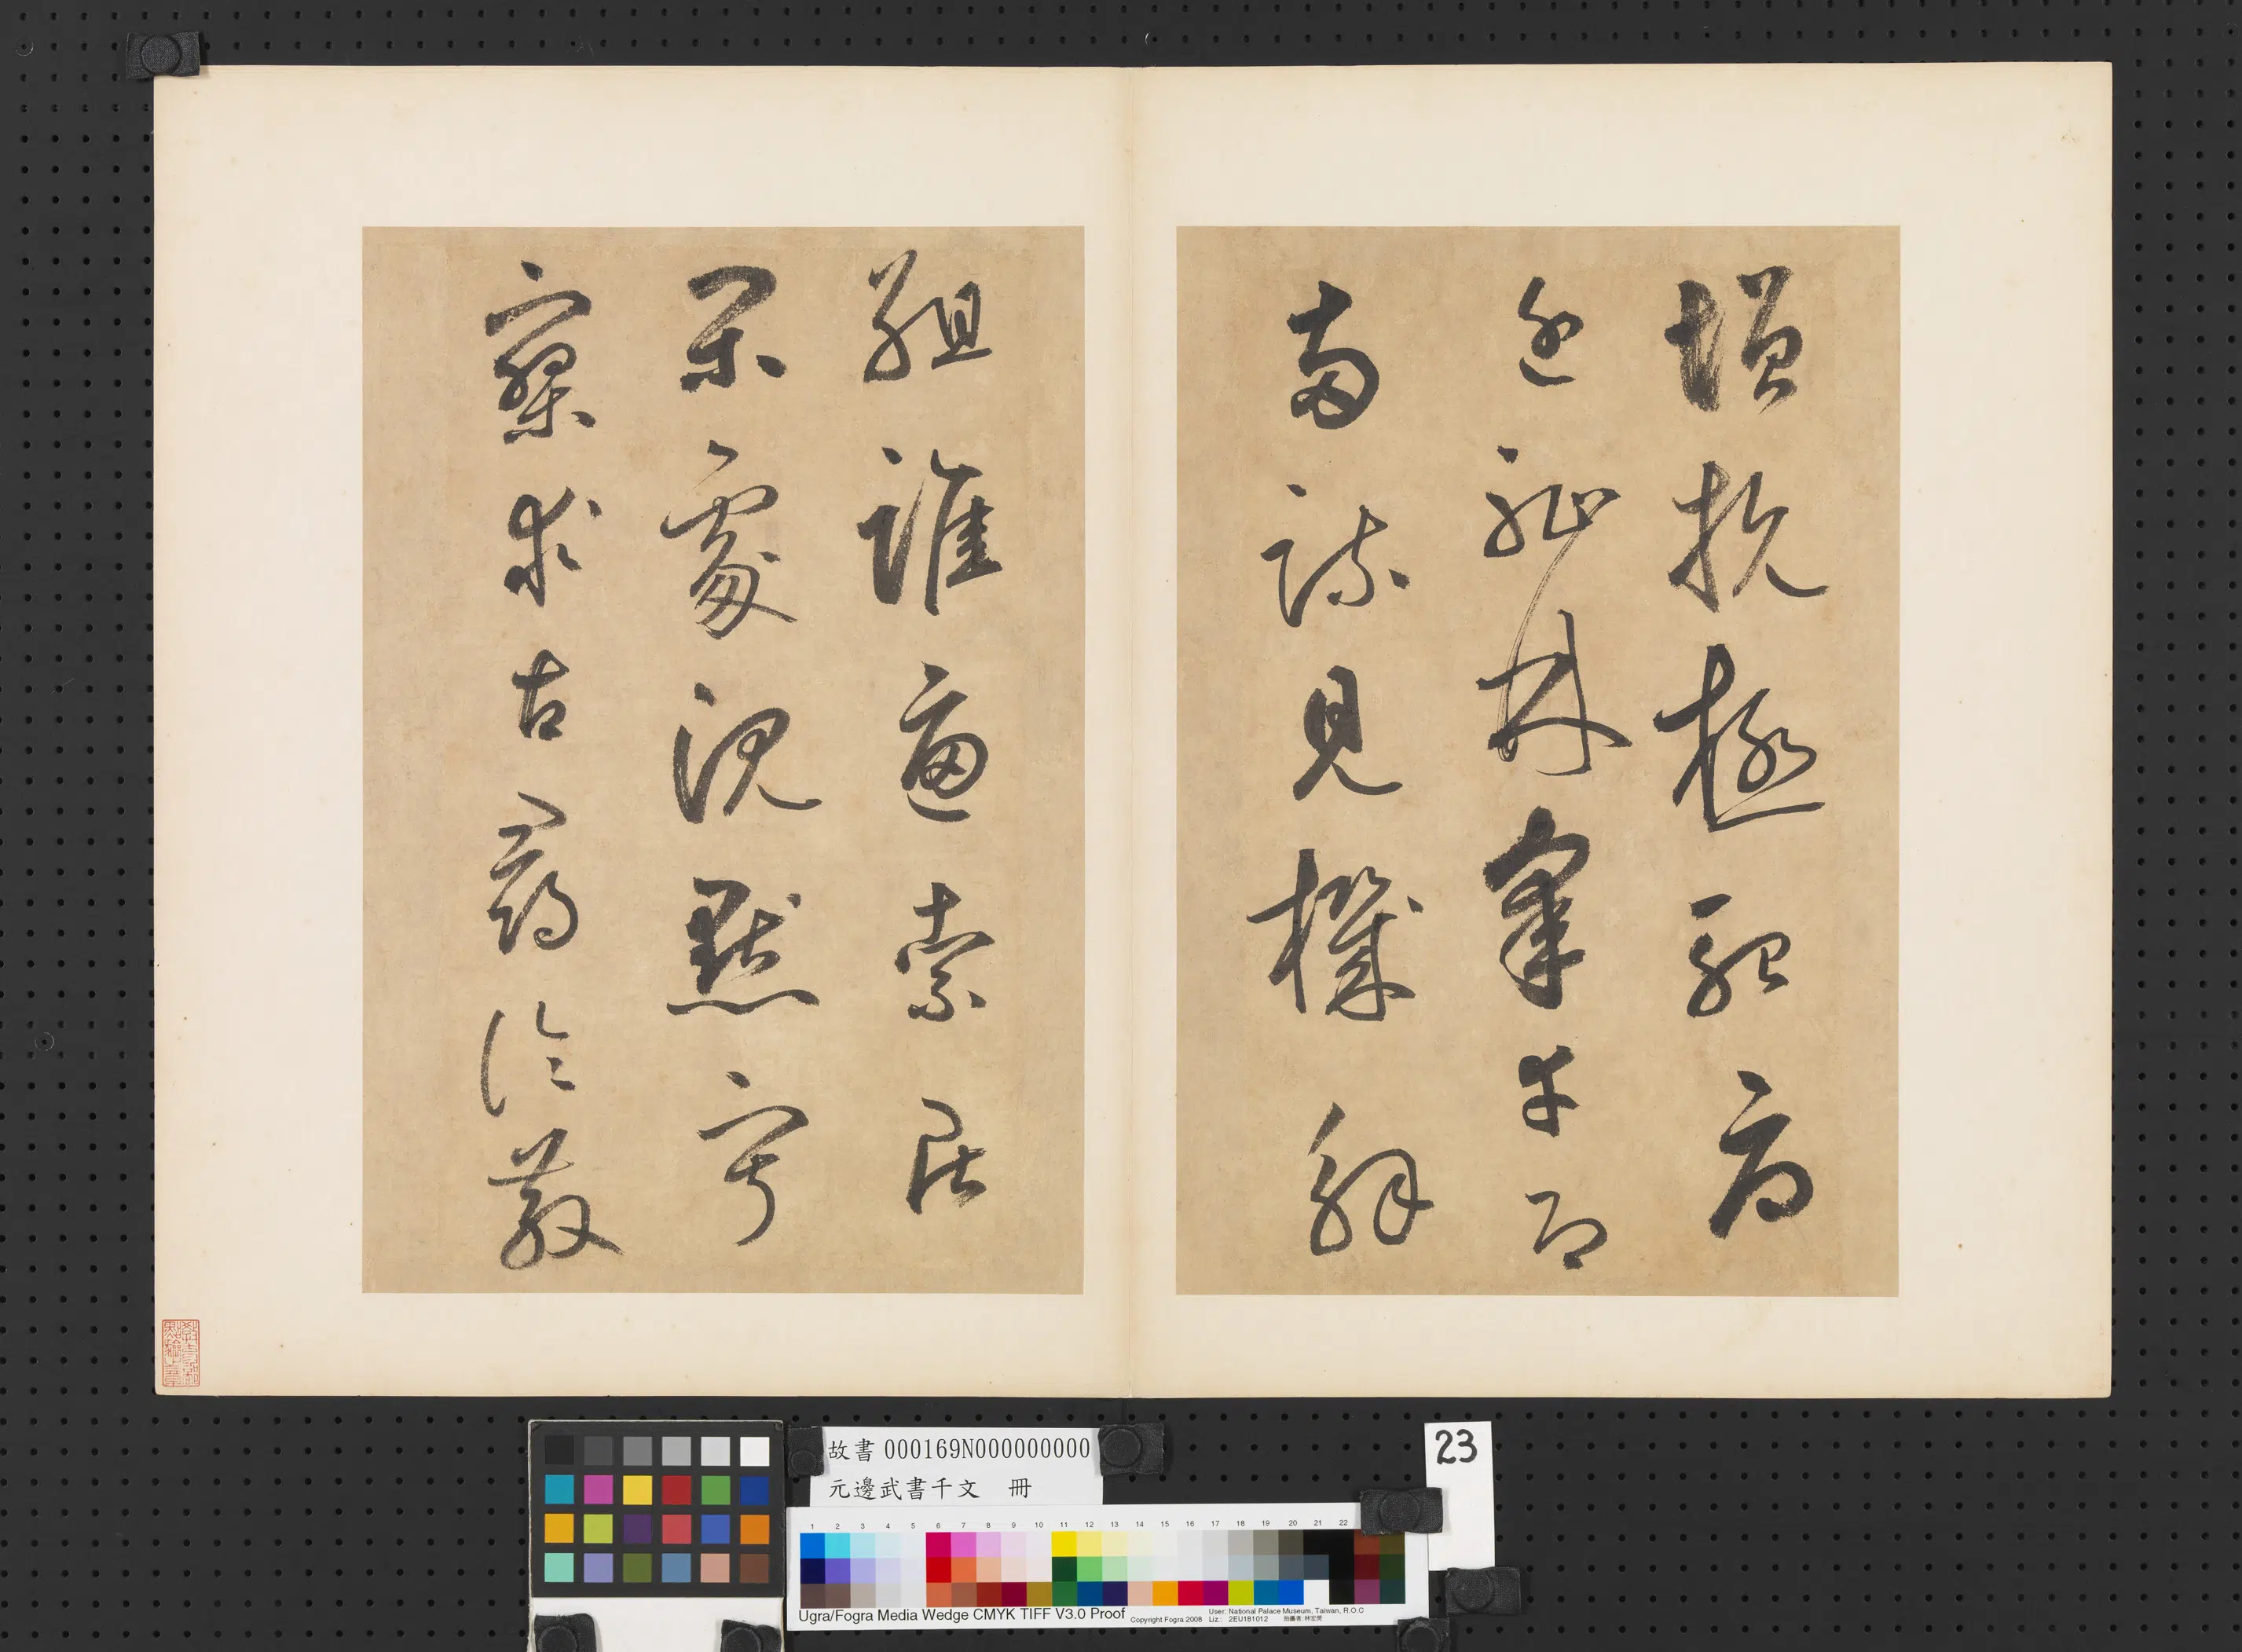 增抗極殆辱
近恥林睪幸即
兩疏見機解
組誰逼索居
閑處沉默寂
寥求古尋論散
故書 000169N000000000
元邊武書千文 冊
23
1 2 3 4 5 6 7 8 9 10 11 12 13 14 15 16 17 18 19 20 21 22
Ugra/Fogra Media Wedge CMYK TIFF V3.0 Proof
Copyright Fogra 2008
User: National Palace Museum, Taiwan, R.O.C
Liz.: 2EU181012